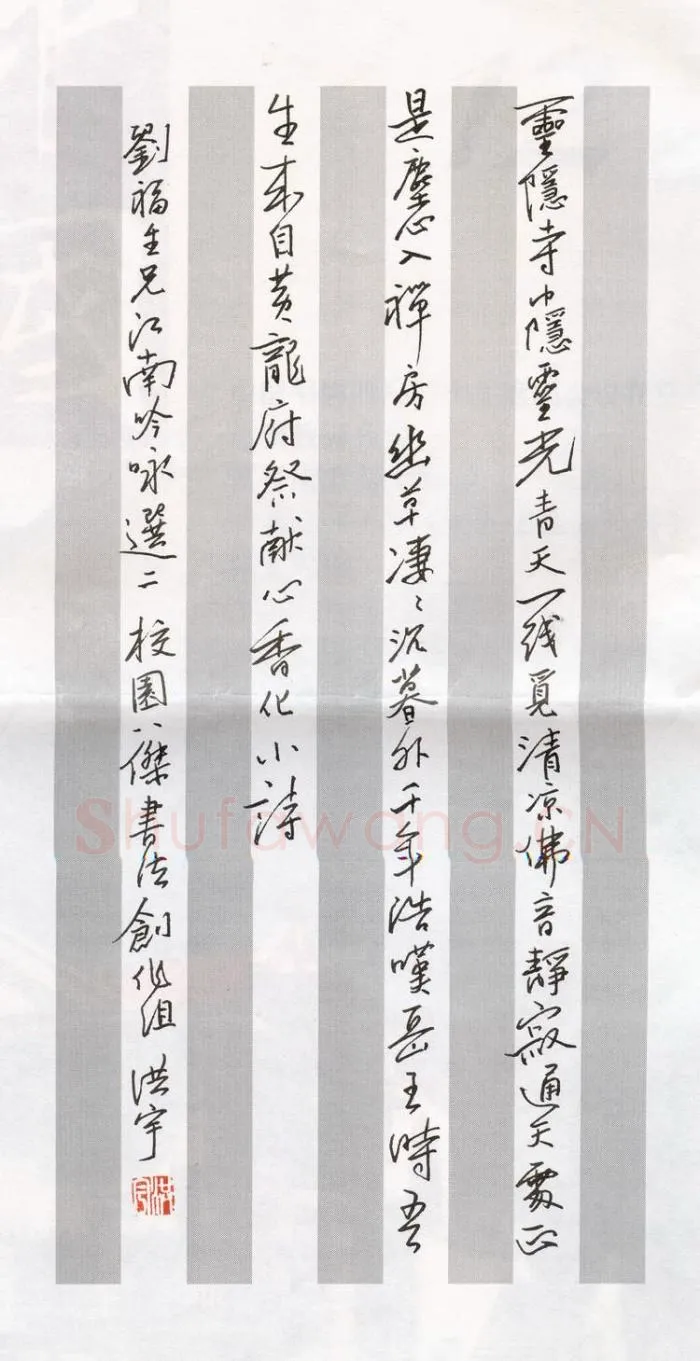 靈隱寺小隱靈光青天一线覓清凉佛音靜寂通天處正
是塵心入禪房幽草凄〻沉暮外千年浩嘆岳王時吾
生来自黄龍府祭献心香化小詩
劉福生兄江南吟咏選二 校園八傑書法創作組 洪宇
Shufawang.CN